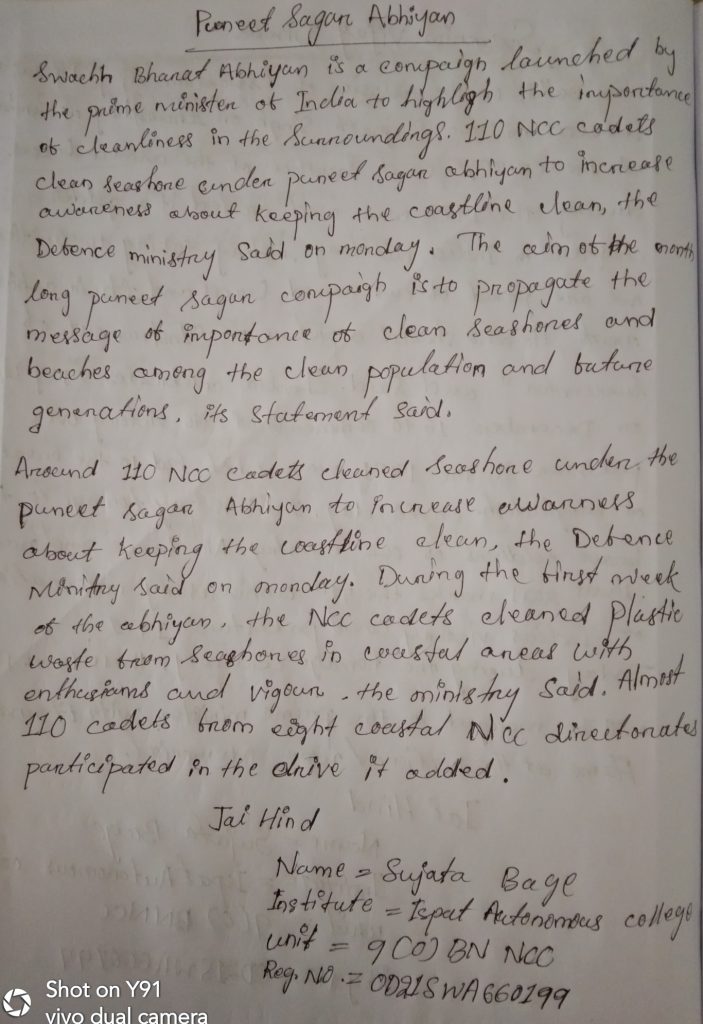 Puneet Sagar Abhiyan
Swachh Bharat Abhiyan is a compaign launched by
the prime minister of India to highligh the importance
of cleanliness in the Surroundings. 110 NCC cadets
clean seashore under puneet Sagar abhiyan to increase
awareness about keeping the coastline clean, the
Defence ministry Said on monday. The aim of the month
long puneet sagar compaigh is to propagate the
message of importance of clean seashores and
beaches among the clean population and future
generations, its statement said.
Around 110 NCC Cadets cleaned seashore under the
puneet sagar Abhiyan to increase awarness
about keeping the coastline clean, the Defence
Minitry said on monday. During the first week
of the abhiyan, the NCC cadets cleaned plastic
waste from seashores in coastal areas with
enthusiams and vigour, the ministry said. Almost
110 cadets from eight coastal NCC directorates
participated in the drive it added.
Jai Hind
Name = Sujata Bage
Institute = Ispat Autonomous college
unit = 9(O) BN NCC
Reg. NO. = OD21SWA660199
Shot on Y91
vivo dual camera